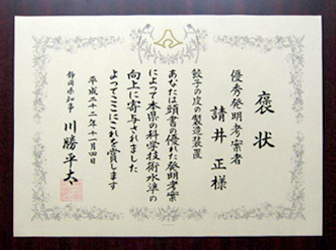 褒状
優秀発明考案者
請井 正 様
餃子の皮の製造装置
あなたは頭書の優れた発明考案
によって本県の科学技術水準の
向上に寄与されました
よってここにこれを賞します
平成二十二年十一月四日
静岡県知事 川勝平太